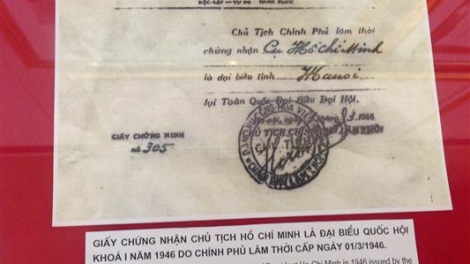 ĐỘC-LẬP — TỰ-DO
Chủ Tịch Chính Phủ lâm thời
chứng nhận Cụ Hồ Chí Minh
là đại biểu tỉnh Hanoi
tại Toàn Quốc Đại Biểu Đại Hội.
GIẤY CHỨNG MINH
số 305
GIẤY CHỨNG NHẬN CHỦ TỊCH HỒ CHÍ MINH LÀ ĐẠI BIỂU QUỐC HỘI
KHOÁ I NĂM 1946 DO CHÍNH PHỦ LÂM THỜI CẤP NGÀY 01/3/1946.
Ho Chi Minh in 1946 issued by the